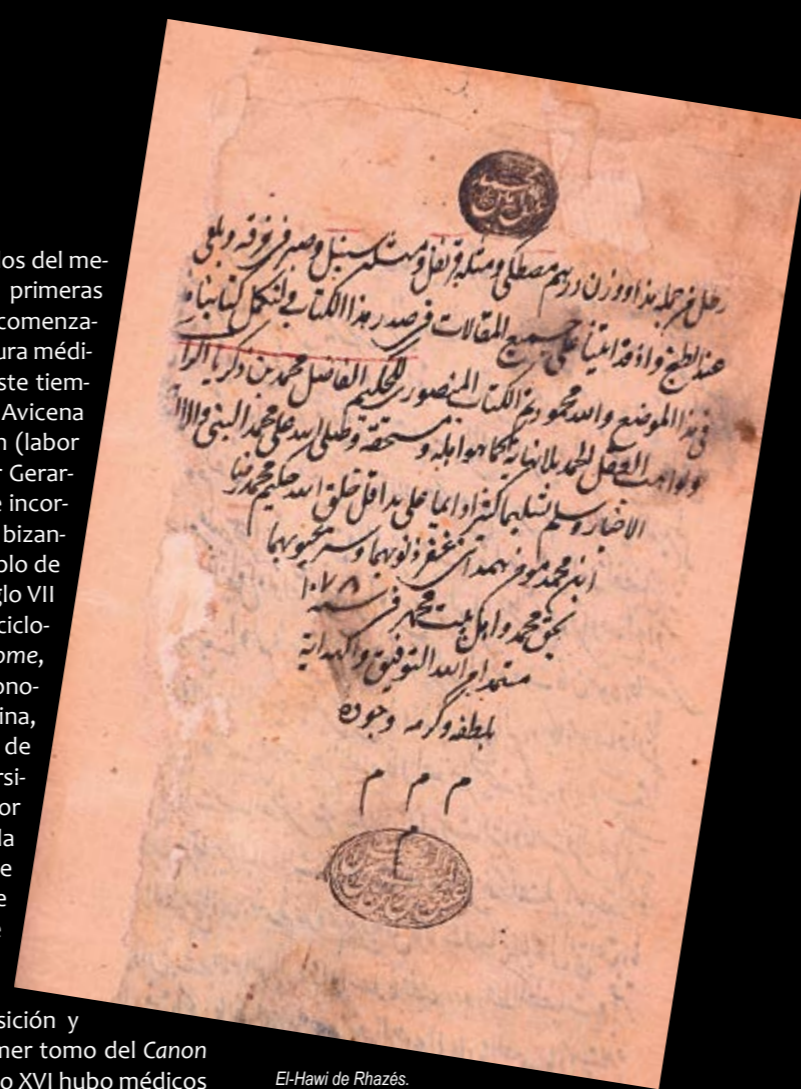 los del me-
primeras
comenza-
ura médi-
ste tiem-
Avicena
n (labor
r Gerar-
e incor-
bizan-
plo de
glo VII
ciclo-
ome,
ono-
ina,
de
rsi-
or
la
e
e
e
sición y
mer tomo del Canon
o XVI hubo médicos
رطل من جملة هذا ووزن درهم مصطكى ومثله قرنفل ومثله سنبل وصير في خرقه ويلقى
عند الطبخ واذ قد اتينا على جميع المقالات في صدر هذا الكتاب فلنكمل كتابنا هذا
في هذا الموضع والله محمود تم الكتاب المنصوري للحكيم الفاضل محمد بن زكريا الرازي
ولواهب العقل الحمد بلا نهاية كما هو اهله ومستحقه وصلى الله على محمد النبي واله
الاخيار وسلم تسليما كثيرا دايما على يد اقل خلق الله حكيم محمد رضا
ابن محمد مومن همداني غفر ذنوبهما وستر عيوبهما
بحق محمد واهل بيت محمد في سنه ١٠٧٨
مستمدا من الله التوفيق والهداية
بلطفه وكرمه وجوده
م م م
El-Hawi de Rhazés.